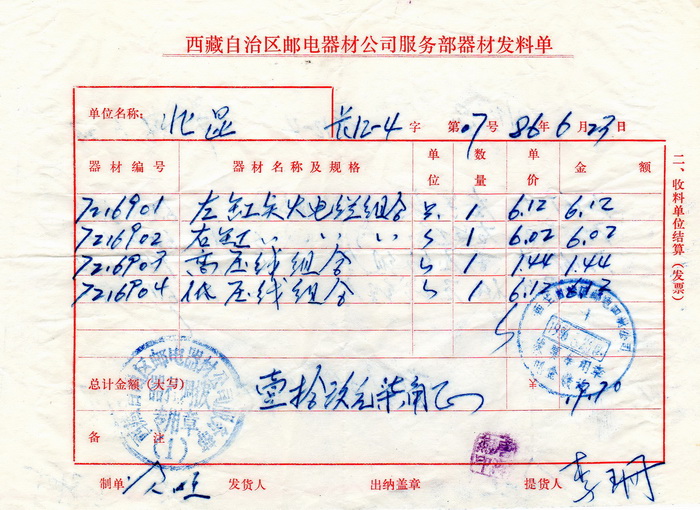 西藏自治区邮电器材公司服务部器材发料单
单位名称: 北昆 长12-4 字 第07号 86年6月23日
器材编号 器材名称及规格 单位 数量 单价 金额
7216901 左缸点火电缆组合 只 1 6.12 6.12
7216902 右缸 〃 〃 〃 〃 1 6.02 6.02
7216903 高压线组合 〃 1 1.44 1.44
7216904 低压线组合 〃 1 6.12
总计金额(大写) 壹拾玖元柒角正 ¥ 19.70
备注
制单 发货人 出纳盖章 提货人 李珊
二、收料单位结算(发票)
西藏自治区邮电器材公司
专用章
(1)